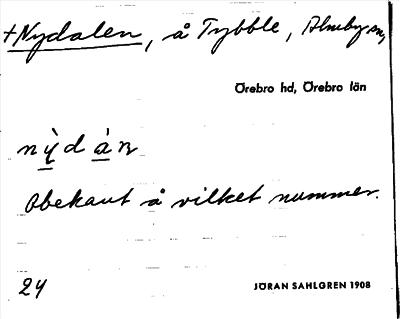 +Nydalen, å Tybble, Almby sn,
Örebro hd, Örebro län
nỳdàn
Obekant å vilket nummer.
24 JÖRAN SAHLGREN 1908